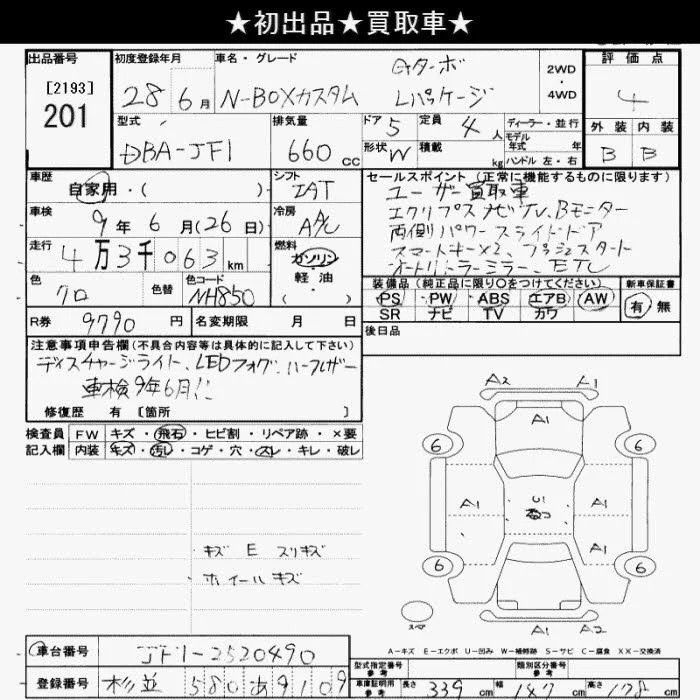 ★初出品★買取車★
出品番号 初度登録年月 車名・グレード 評価点
[2193]
201
28 6月 N-BOXカスタム Gターボ Lパッケージ 2WD・4WD 4
型式 排気量 ドア 5 定員 4人 ディーラー・並行 外装 内装
DBA-JF1 660cc 形状 W 積載 kg モデル年式 年 ハンドル 左・右 B B
車歴 シフト セールスポイント (正常に機能するものに限ります)
自家用・( ) IAT ユーザー買取車
車検 冷房 エクリプスナビTV、Bモニター
9年6月(26日) A/C 両側パワースライドドア
走行 燃料 スマートキー×2、プッシュスタート
4万3千063km ガソリン オートリトラミラー、ETC
軽・油
( )
色 色替 色コード 装備品(純正品に限り○をつけてください) 新車保証書
クロ NH850 PS PW ABS エアB AW 有 無
SR ナビ TV カワ
R券 9790円 名変期限 月 日 後日品
注意事項申告欄(不具合内容等は具体的に記入して下さい)
ディスチャージライト、LEDフォグ、ハーフレザー
車検9年6月!!
修復歴 有 [箇所 ]
検査員 FW キズ・飛石・ヒビ割・リペア跡・×要
記入欄 内装 キズ・汚レ・コゲ・穴・スレ・キレ・破レ
A2 A1
A1
6 6
A1 U1 A1
キズ E スリキズ
A1
ホイールキズ
6 6
スペア
A1 A2
A-キズ E-エクボ U-凹み W-補修跡 S-サビ C-腐食 XX-交換済
車台番号 JF1-2520490 型式指定番号 参考 類別区分番号 参考
登録番号 杉並 580 あ 9109 車庫証明用 参考 長さ 339cm 幅 147cm 高さ 178cm